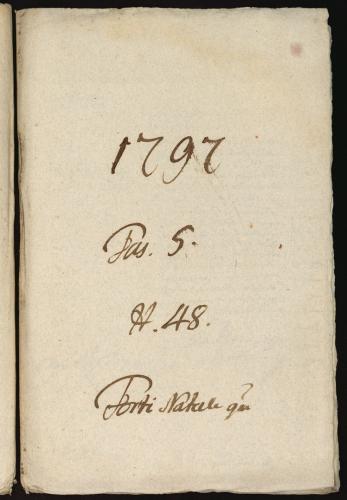 1797
Fas. 5.
N. 48.
Forti Natale qm